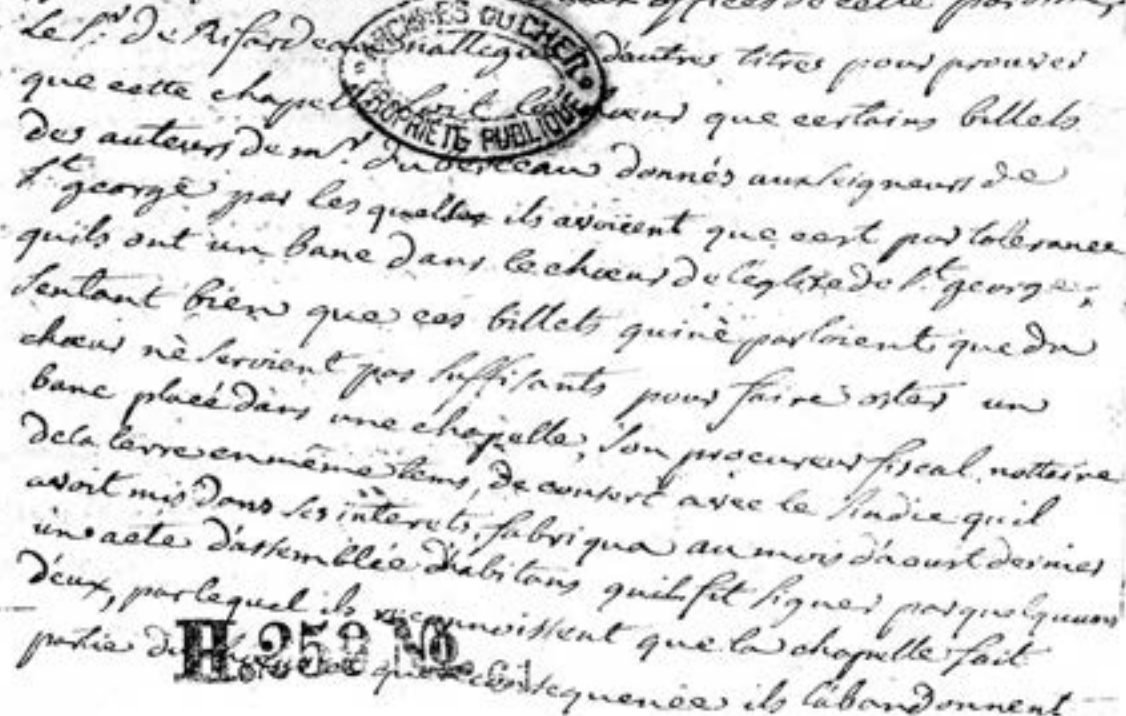 offices de cette paroisse,
Le Sr. de Rifardeau n'allegue d'autres titres pour prouver
que cette chapelle soit le chœur que certains billets
des auteurs de mr. Duberceau donnés aux seigneurs de
St. george par les quelles ils avoüent que cest par tolerance
quils ont un banc dans le chœur de leglize de St. george,
Sentant bien que ces billets qui nè parloient que du
chœur nè seroient pas suffisants pour faire oster un
banc placé dans une chapelle, son procureur fiscal, nottaire
de la terre en même tems, de consert avec le sindic quil
avoit mis dans ses interets, fabriqua au mois daoust dernier
un acte d'assemblée d'habitans quil fit signer par quelquuns
d'eux, par lequel ils reconnoissent que la chapelle fait
partie du consequence ils l'abandonnent
ARCHIVES DU CHER
PROPRIÉTÉ PUBLIQUE
H. 259 No.